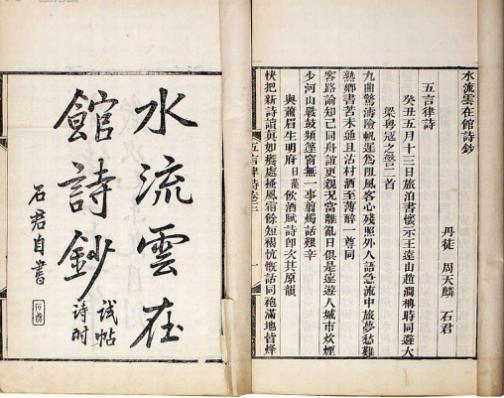 水流雲在館詩鈔
丹徒 周天麟 石君
五言律詩
癸丑五月十三日旅泊書懷示王蓬山趙澗樗時同避大
梁粵寇之警二首
九曲驚濤險帆遲為阻風客心殘照外人語急流中旅夢愁難
熟鄉書苦未通且沽村酒至薄醉一尊同
客路論知己同舟誼更親況當離亂日俱是遠遊人城市炊煙
少河山戰鼓頻篷窗無一事翦燭話艱辛
與蕭眉生明府飲酒賦詩即次其原韻
快把新詩讀真如癢處搔風霜餘短褐忼慨話同袍滿地皆烽
五言律詩
水流雲在
館詩鈔
試帖
詩附
石君自書